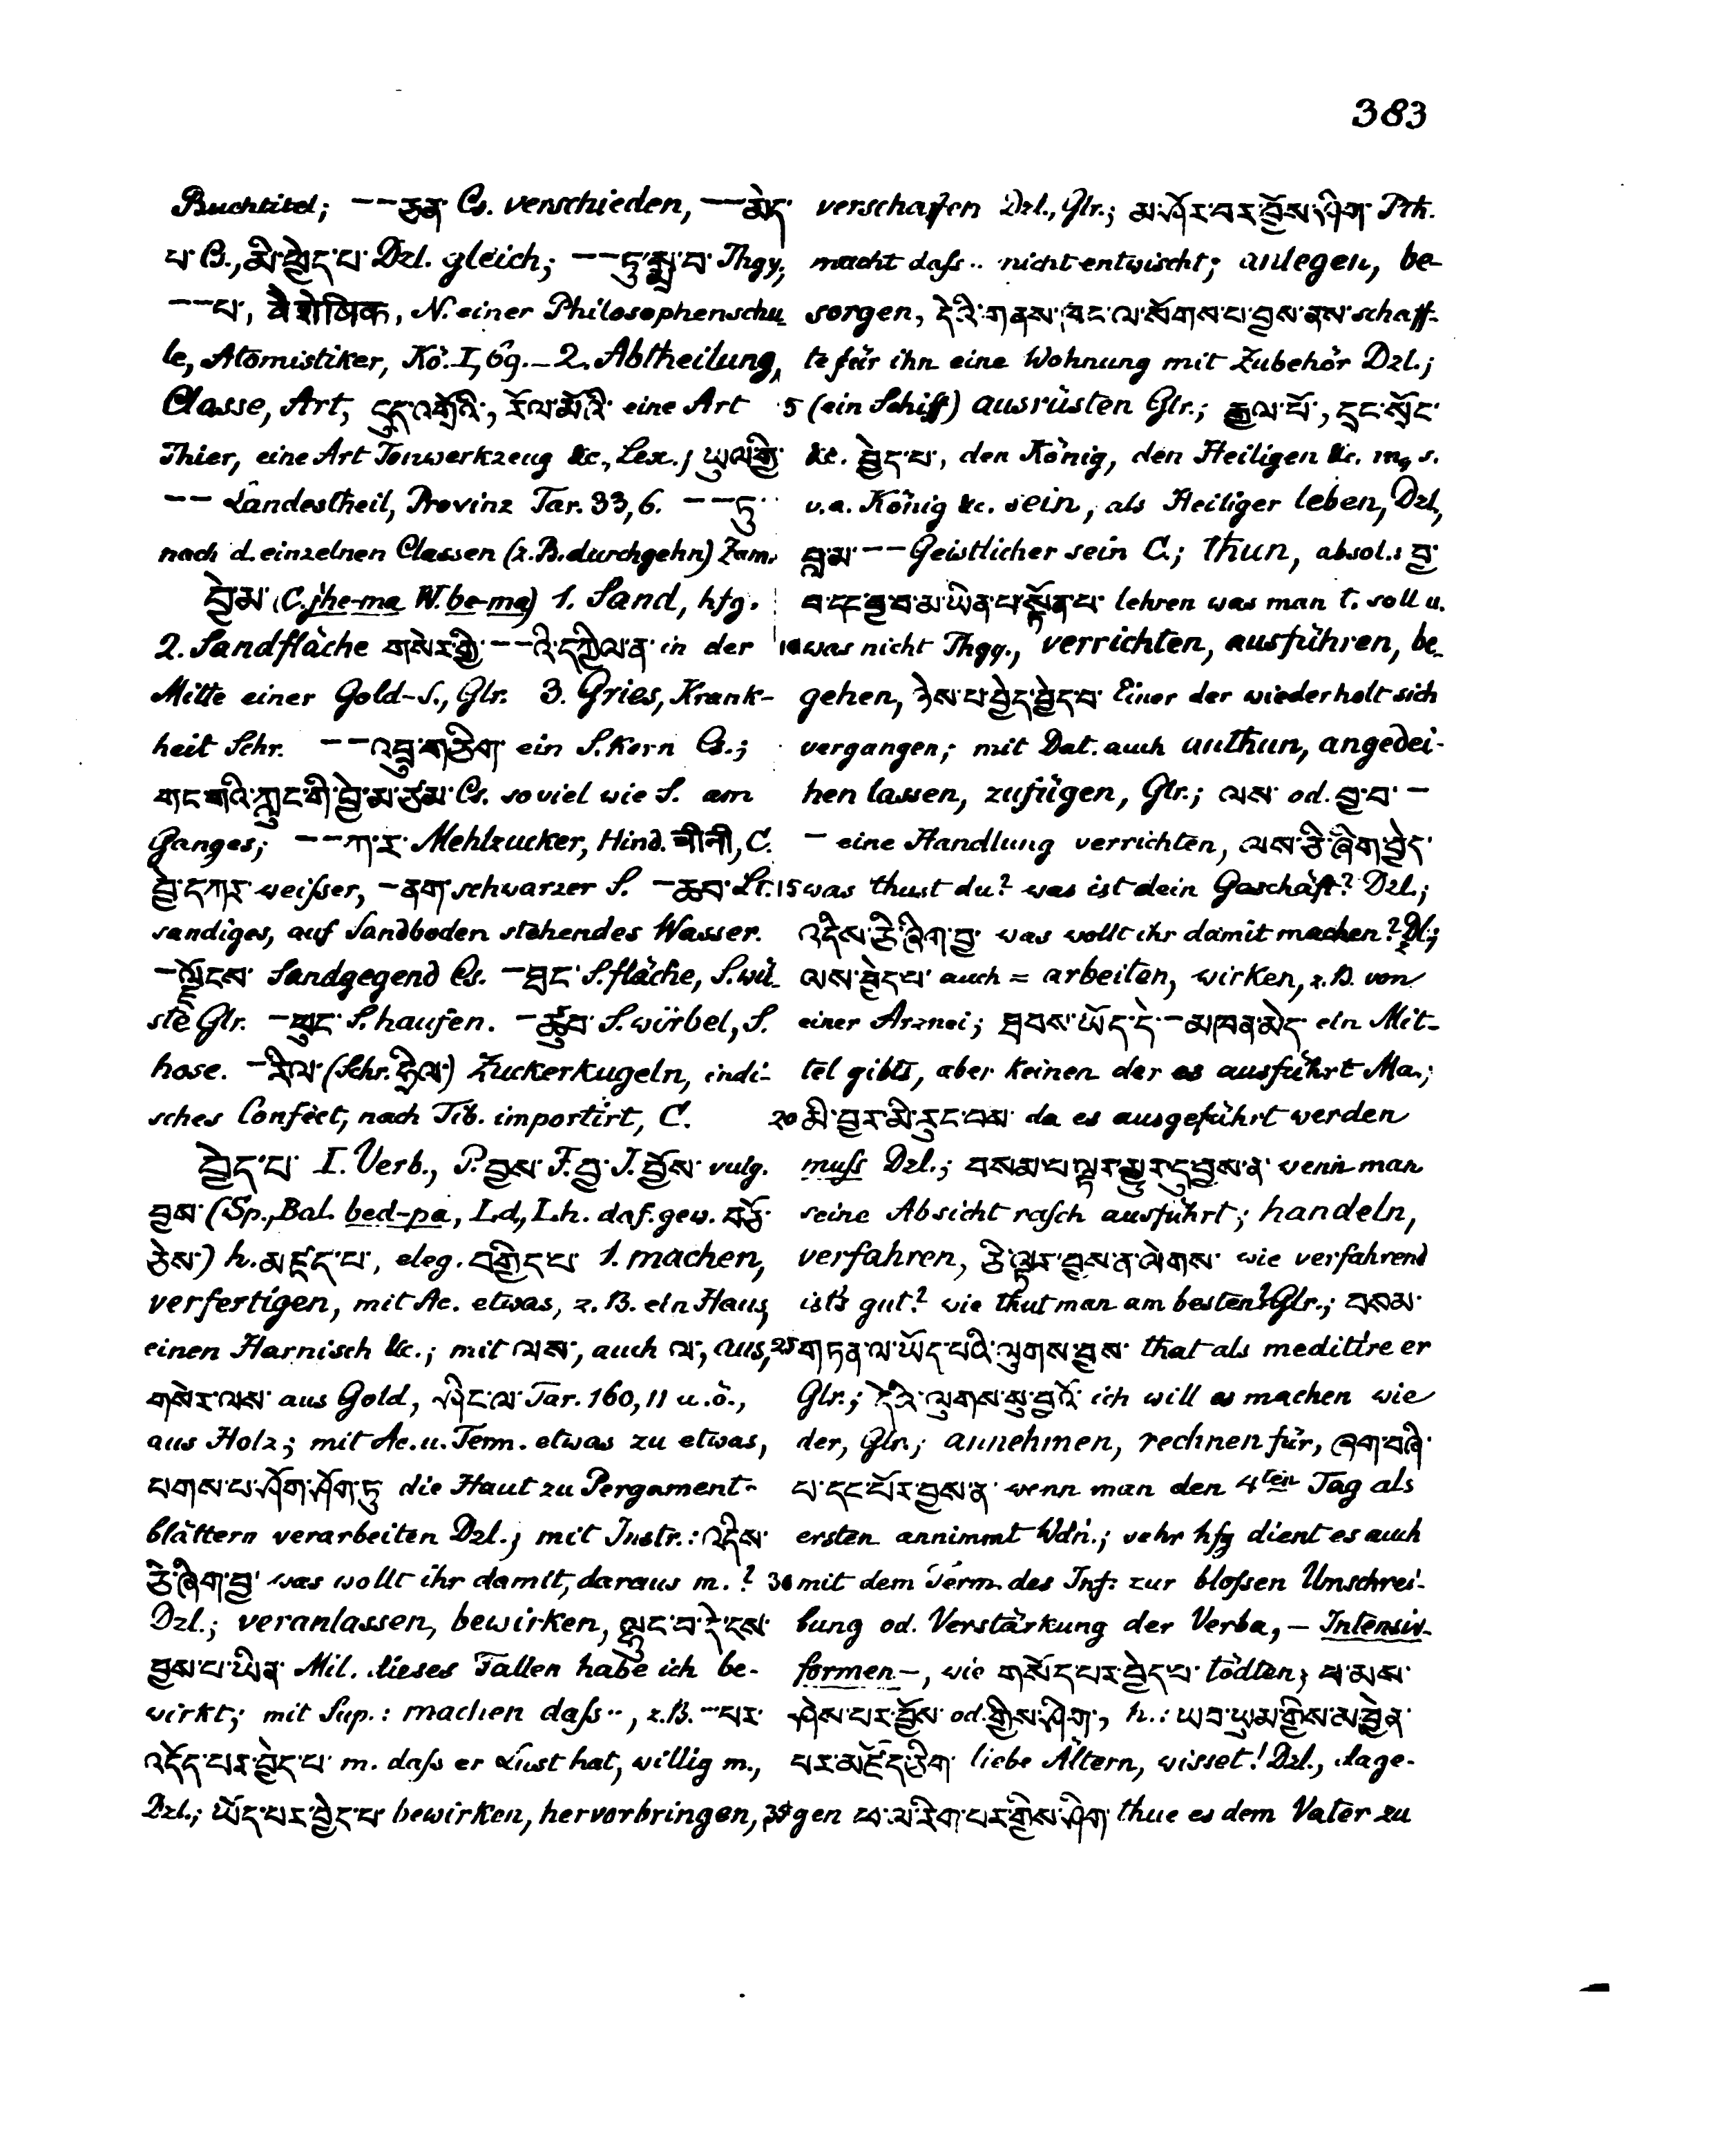 383
Buchtitel; –– ཅན་ Cs. verschieden, –– མེད་
པ་ B., མི་བྱེད་པ་ Dzl. gleich; –– ཏུ་སྨྲ་བ་ Thgy;
–– པ་, वैशेषिक, N. einer Philosophenschu-
le, Atomistiker, Kö. I, 69. – 2. Abtheilung,
Classe, Art, དུད་འགྲོའི་, རོལ་མོའི་ eine Art
Thier, eine Art Tonwerkzeug &c., Lex.; ཡུལ་གྱི་
–– Landestheil, Provinz Tar. 33, 6. –– ཏུ་
nach d. einzelnen Classen (z. B. durchgehn) Zam.
བྱེ་མ་ (C. jhe-ma W. be-ma) 1. Sand, hfg.
2. Sandfläche གསེར་གྱི་ –– འི་དཀྱིལ་ན་ in der
Mitte einer Gold-S., Glr. 3. Gries, Krank-
heit Schr. –– འབྲུ་གཅིག་ ein S.korn Cs.;
གང་གཱའི་ཀླུང་གི་བྱེ་མ་ཙམ་ Cs. so viel wie S. am
Ganges; –– ཀ་ར་ Mehlzucker, Hind. चीनी, C.
བྱེ་དཀར་ weißer, – ནག་ schwarzer S. – ཆབ་ Lt.
sandiges, auf Sandboden stehendes Wasser.
– ལྗོངས་ Sandgegend Cs. – ཐང་ S.fläche, S.wü-
ste Glr. – ཕུང་ S.haufen. – ཚུབ་ S.wirbel, S.
hose. – རིལ་ (Schr. ཧྲིལ་) Zuckerkugeln, indi-
sches Confect, nach Tib. importirt, C.
བྱེད་པ་ I. Verb., P. བྱས་ F. བྱ་ J. བྱོས་ vulg.
བྱས་ (Sp., Bal. bed-pa, Ld., Lh. daf. gew. བཅོ་
ཅེས་) h. མཛད་པ་, eleg. བགྱིད་པ་ 1. machen,
verfertigen, mit Ac. etwas, z. B. ein Haus,
einen Harnisch &c.; mit ལས་, auch ལ་, aus,
གསེར་ལས་ aus Gold, ཤིང་ལ་ Tar. 160, 11 u. ö.,
aus Holz; mit Ac. u. Term. etwas zu etwas,
པགས་པ་ཤོག་ཤོག་ཏུ་ die Haut zu Pergament-
blättern verarbeiten Dzl.; mit Instr.: འདིས་
ཅི་ཞིག་བྱ་ was wollt ihr damit, daraus m.?
Dzl.; veranlassen, bewirken, ལྷུང་བ་དེ་ངས་
བྱས་པ་ཡིན་ Mil. dieses Fallen habe ich be-
wirkt; mit Sup.: machen daß··, z. B. ··པར་
འདོད་པར་བྱེད་པ་ m. daß er Lust hat, willig m.,
Dzl.; ཡོད་པར་བྱེད་པ་ bewirken, hervorbringen,
verschaffen Dzl., Glr.; མ་ཤོར་བར་བྱོས་ཤིག་ Pth.
macht daß ·· nicht entwischt; anlegen, be-
sorgen, དེའི་གནས་ཁང་ལ་སོགས་པ་བྱས་ནས་ schaff-
te für ihn eine Wohnung mit Zubehör Dzl.;
5 (ein Schiff) ausrüsten Glr.; རྒྱལ་པོ་, དྲང་སྲོང་
&c. བྱེད་པ་, den König, den Heiligen &c. m., s.
v. a. König &c. sein, als Heiliger leben, Dzl.,
བླ་མ་ –– Geistlicher sein C.; thun, absol.: བྱ་
བ་དང་བྱ་བ་མ་ཡིན་པ་སྟོན་པ་ lehren was man t. soll u.
10 was nicht Thgy., verrichten, ausführen, be-
gehen, ཉེས་པ་བྱེད་བྱེད་པ་ Einer der wiederholt sich
vergangen; mit Dat. auch anthun, angedei-
hen lassen, zufügen, Glr.; ལས་ od. བྱ་བ་ –
– eine Handlung verrichten, ལས་ཅི་ཞིག་བྱེད་
15 was thust du? was ist dein Geschäft? Dzl.;
འདིས་ཅི་ཞིག་བྱ་ was wollt ihr damit machen? Dzl.;
ལས་བྱེད་པ་ auch = arbeiten, wirken, z. B. von
einer Arznei; ཐབས་ཡོད་དེ་ – མཁན་མེད་ ein Mit-
tel gibts, aber keinen der es ausführt Ma.;
20 མི་བྱར་མི་རུང་བས་ da es ausgeführt werden
muß Dzl.; བསམ་པ་ལྟར་མྱུར་དུ་བྱས་ན་ wenn man
seine Absicht rasch ausführt; handeln,
verfahren, ཅི་ལྟར་བྱས་ན་ལེགས་ wie verfahrend
ist's gut? wie thut man am besten? Glr.; བསམ་
25 གཏན་ལ་ཡོད་པའི་ལུགས་བྱས་ that als meditire er
Glr.; དེའི་ལུགས་སུ་བྱའོ་ ich will es machen wie
der, Glr.; annehmen, rechnen für, ཞག་བཞི་
པ་དང་པོར་བྱས་ན་ wenn man den 4ten Tag als
ersten annimmt Wdn.; sehr hfg dient es auch
30 mit dem Term. des Inf. zur bloßen Umschrei-
bung od. Verstärkung der Verba, – Intensiv-
formen –, wie གསོད་པར་བྱེད་པ་ tödten; ཕ་མས་
ཤེས་པར་བྱོས་ od. གྱིས་ཤིག་, h.: ཡབ་ཡུམ་གྱིས་མཁྱེན་
པར་མཛོད་ཅིག་ liebe Ältern, wisset! Dzl., dage-
35 gen ཕ་ལ་རིག་པར་གྱིས་ཤིག་ thue es dem Vater zu